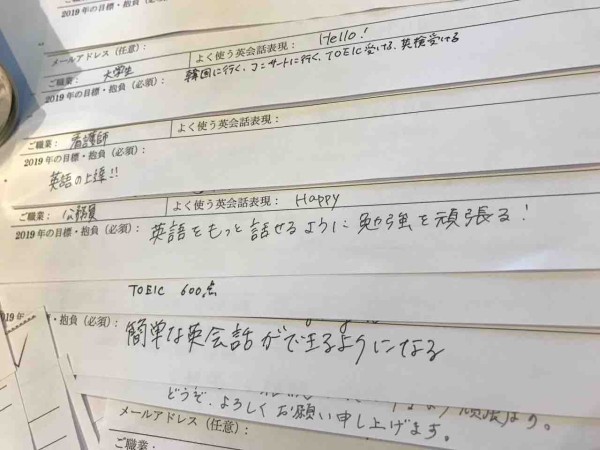 2019年の目標・抱負(必須):
メールアドレス(任意):
よく使う英会話表現: Hello!
ご職業: 大学生
2019年の目標・抱負(必須): 韓国に行く、コンサートに行く、TOEIC受ける、英検受ける
ご職業: 看護師
よく使う英会話表現:
2019年の目標・抱負(必須):
英語の上達!!
ご職業: 公務員
よく使う英会話表現: Happy
2019年の目標・抱負(必須): 英語をもっと話せるように勉強を頑張る!
TOEIC 600点
2019年
・抱負(必須): 簡単な英会話ができるようになる
どうぞ、よろしくお願い申し上げます。
メールアドレス(任意):
ご職業: